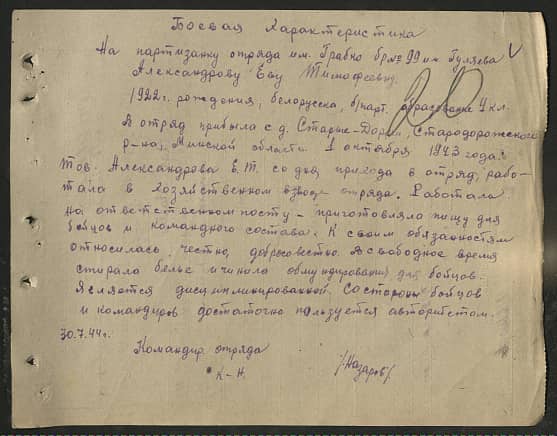 Боевая характеристика
На партизанку отряда им. Грабко бр № 99 им Гуляева
Александрову Еву Тимофеевну.
1922 г. рождения, белорусска, б/парт. образование 4 кл.
В отряд прибыла с д. Старые-Дороги, Стародорожского
р-на, Минской области 1 октября 1943 года.
Тов. Александрова Е.Т. со дня прихода в отряд, рабо-
тала в хозяйственном взводе отряда. Работала
на ответственном посту - приготовляла пищу для
бойцов и командного состава. К своим обязанностям
относилась честно, добросовестно. В свободное время
стирала белье и чинила обмундирование для бойцов.
Является дисциплинированной. Со стороны бойцов
и командиров достаточно пользуется авторитетом.
30.7.44 г.
Командир отряда
К-Н.
/Назаров/